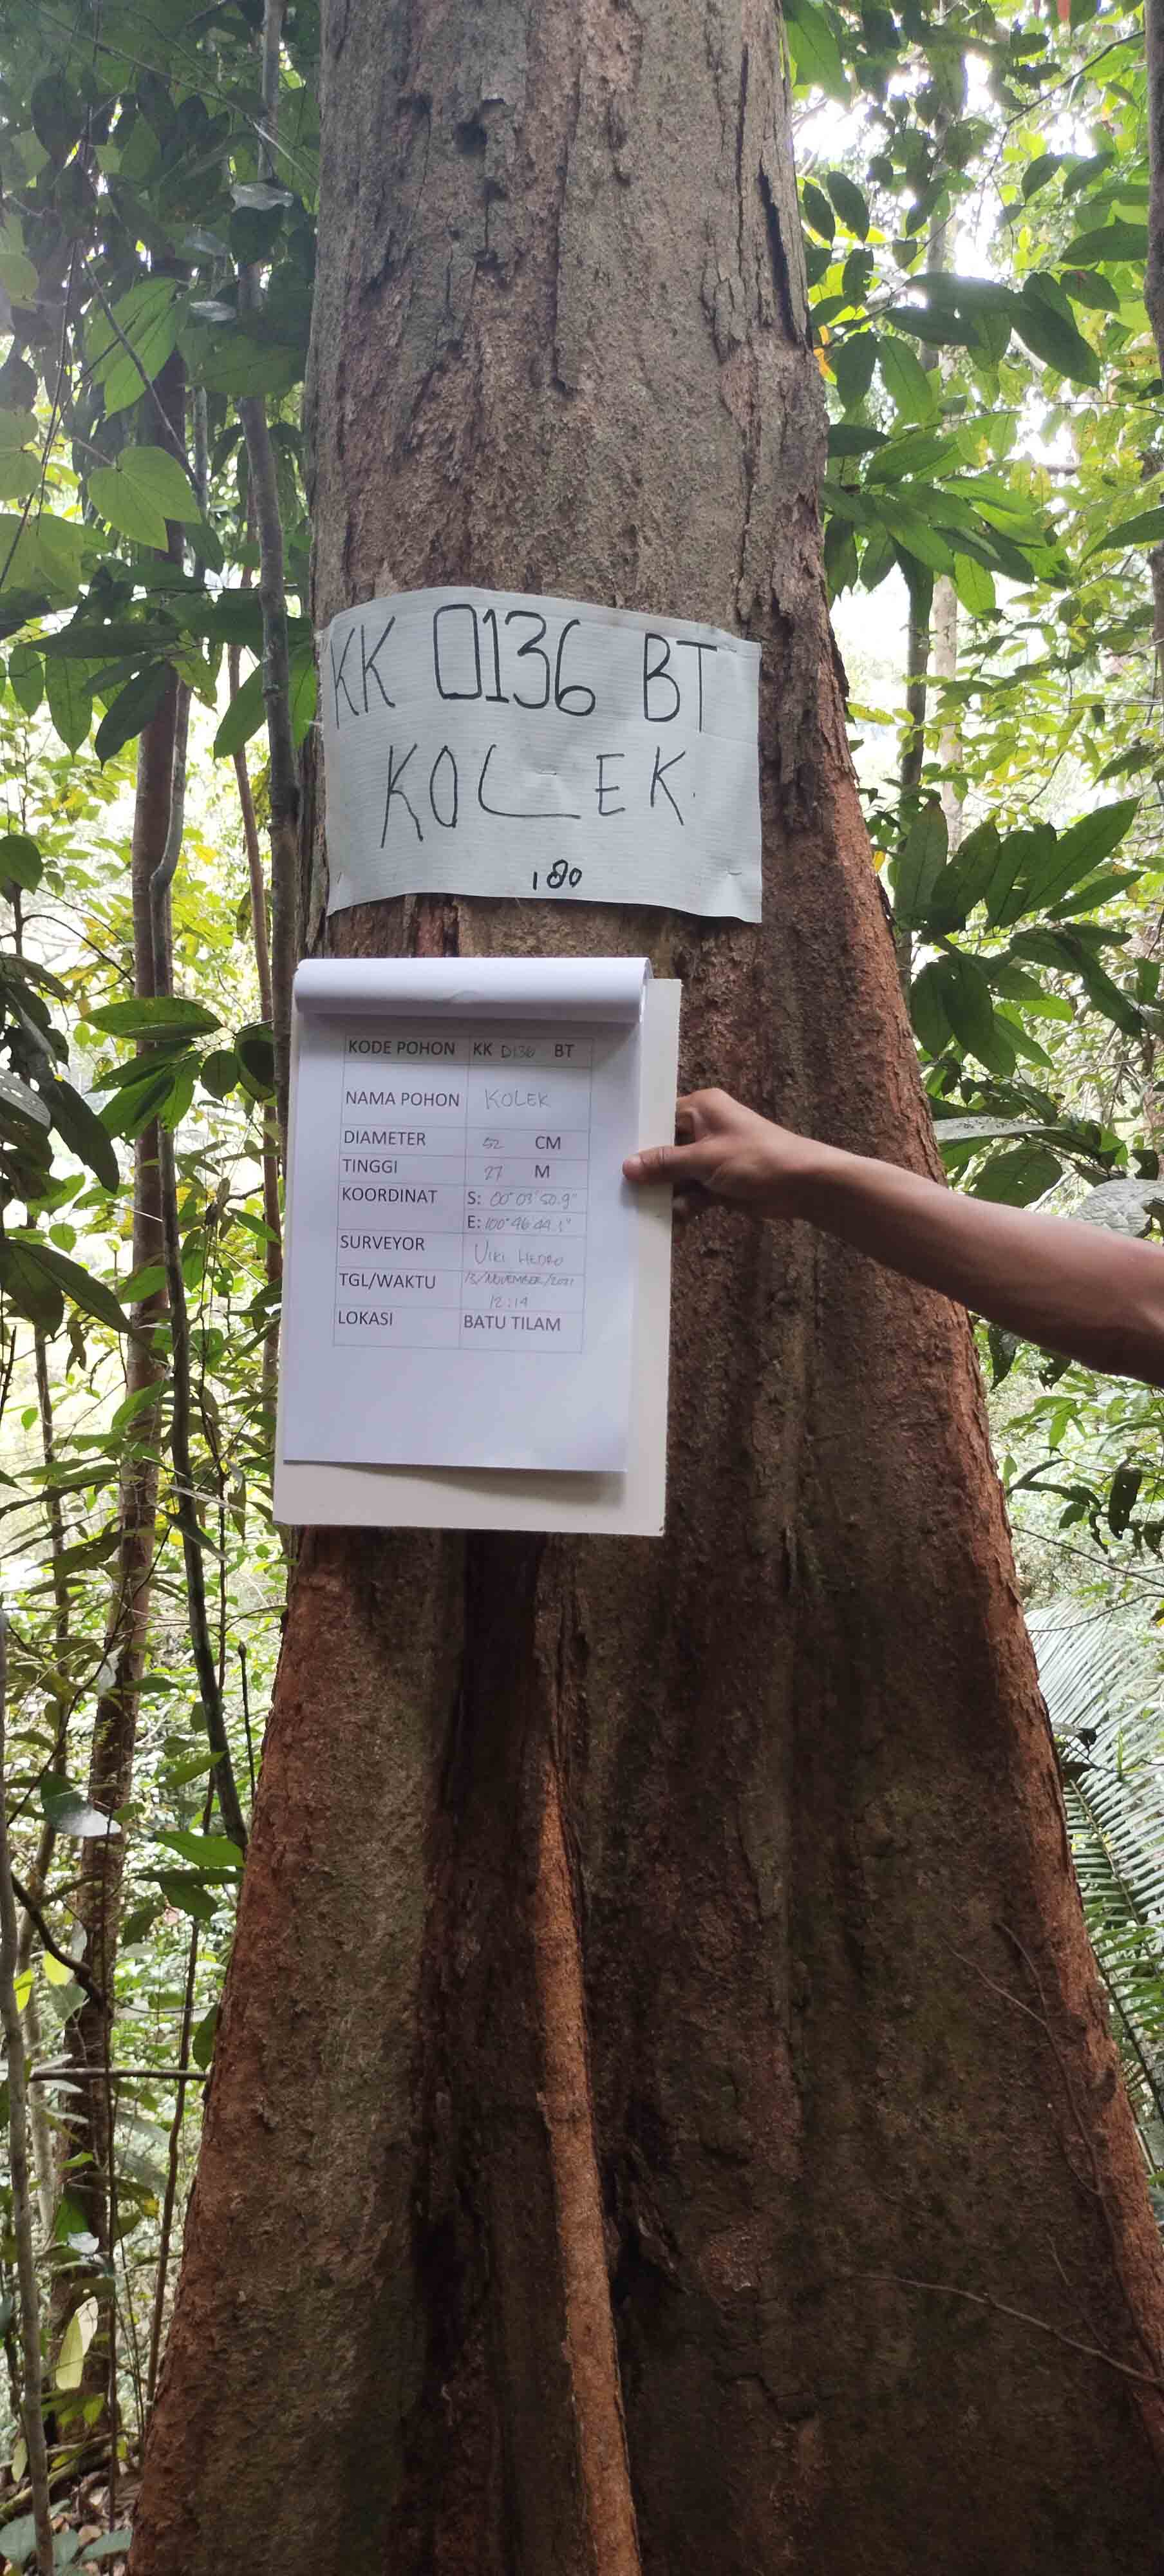 KK 0136 BT
KOLEK.
180
KODE POHON KK 0136 BT
NAMA POHON KOLEK
DIAMETER 52 CM
TINGGI 27 M
KOORDINAT S: 00°03'50.9"
E: 100°46'44.1"
SURVEYOR VIKI HEDRO
TGL/WAKTU 13/NOVEMBER/2021
12:14
LOKASI BATU TILAM